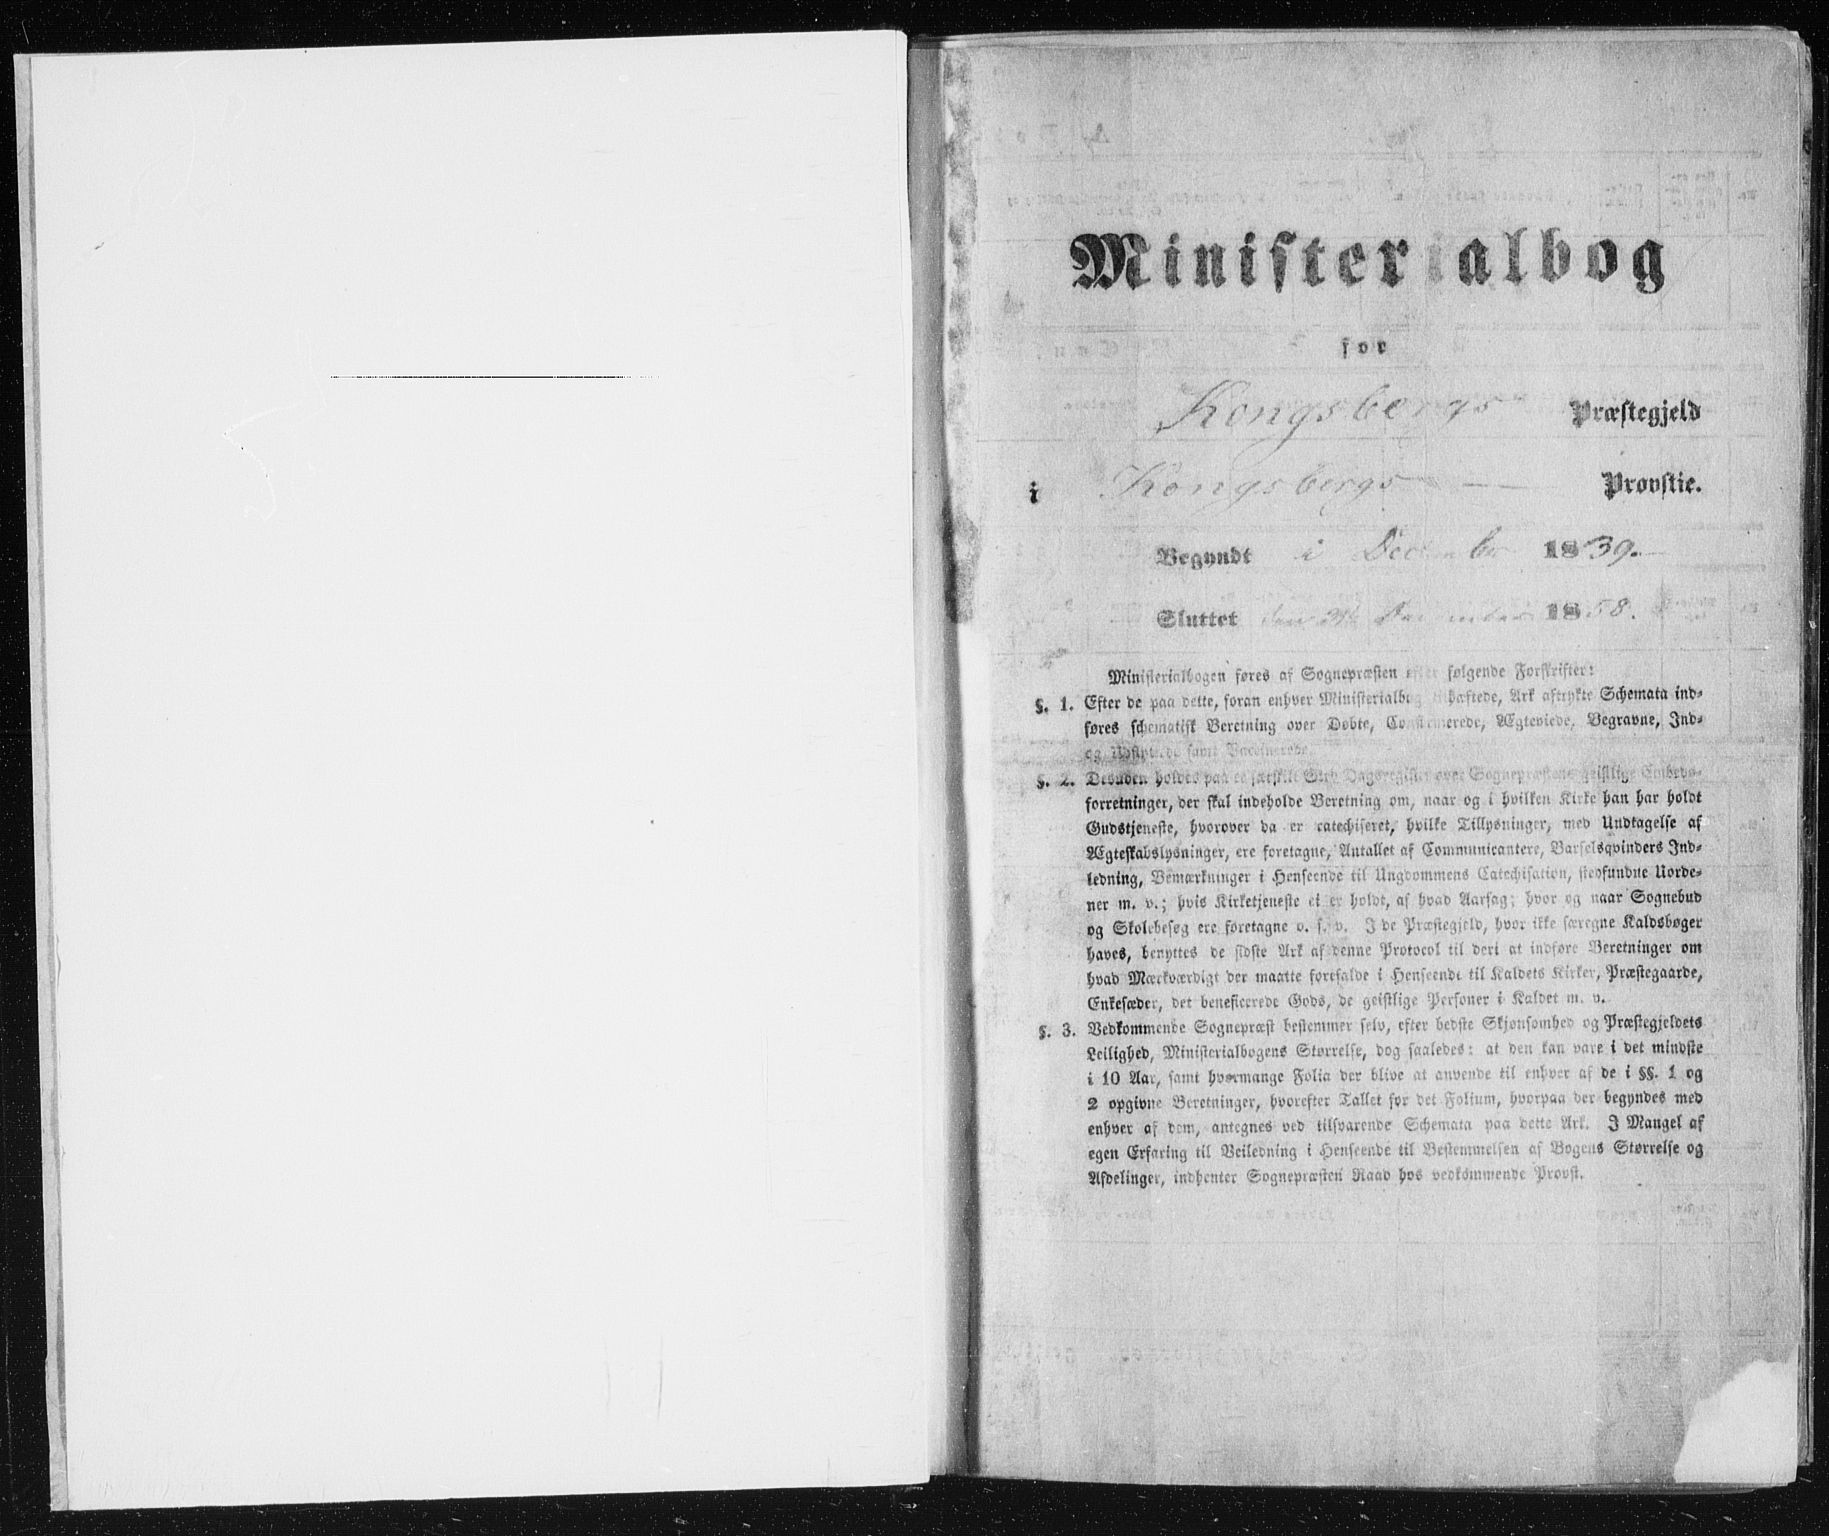 Ministerialbog
for
Kongsbergs Præstegjeld
i Kongsbergs Provstie.
Begyndt i December 1839.
Sluttet den 31te December 1858.
Ministerialbogen føres af Sognepræsten efter følgende Forskrifter:
§. 1. Efter de paa dette, foran enhver Ministerialbog tilhæftede, Ark aftrykte Schemata ind-
føres schematisk Beretning over Døbte, Confirmerede, Ægteviede, Begravne, Ind-
og Udflyttede samt Vaccinerede.
§. 2. Desuden holdes paa et særskilt Sted Dagsregister over Sognepræstens geistlige Embeds-
forretninger, der skal indeholde Beretning om, naar og i hvilken Kirke han har holdt
Gudstjeneste, hvorover da er catechiseret, hvilke Tillysninger, med Undtagelse af
Ægteskabslysninger, ere foretagne, Antallet af Communicantere, Barselsqvinders Ind-
ledning, Bemærkninger i Henseende til Ungdommens Catechisation, stedfundne Uorde-
ner m. v.; hvis Kirketjeneste ei er holdt, af hvad Aarsag; hvor og naar Sognebud
og Skolebesøg ere foretagne o. s. v. I de Præstegjeld, hvor ikke særegne Kaldsbøger
haves, benyttes de sidste Ark af denne Protocol til deri at indføre Beretninger om
hvad Mærkværdigt der maatte forefalde i Henseende til Kaldets Kirker, Præstegaarde,
Enkesæder, det beneficerede Gods, de geistlige Personer i Kaldet m. v.
§. 3. Vedkommende Sognepræst bestemmer selv, efter bedste Skjønsomhed og Præstegjeldets
Leilighed, Ministerialbogens Størrelse, dog saaledes: at den kan vare i det mindste
i 10 Aar, samt hvormange Folia der blive at anvende til enhver af de i §§. 1 og
2 opgivne Beretninger, hvorefter Tallet for det Folium, hvorpaa der begyndes med
enhver af dem, antegnes ved tilsvarende Schemata paa dette Ark. I Mangel af
egen Erfaring til Veiledning i Henseende til Bestemmelsen af Bogens Størrelse og
Afdelinger, indhenter Sognepræsten Raad hos vedkommende Provst.